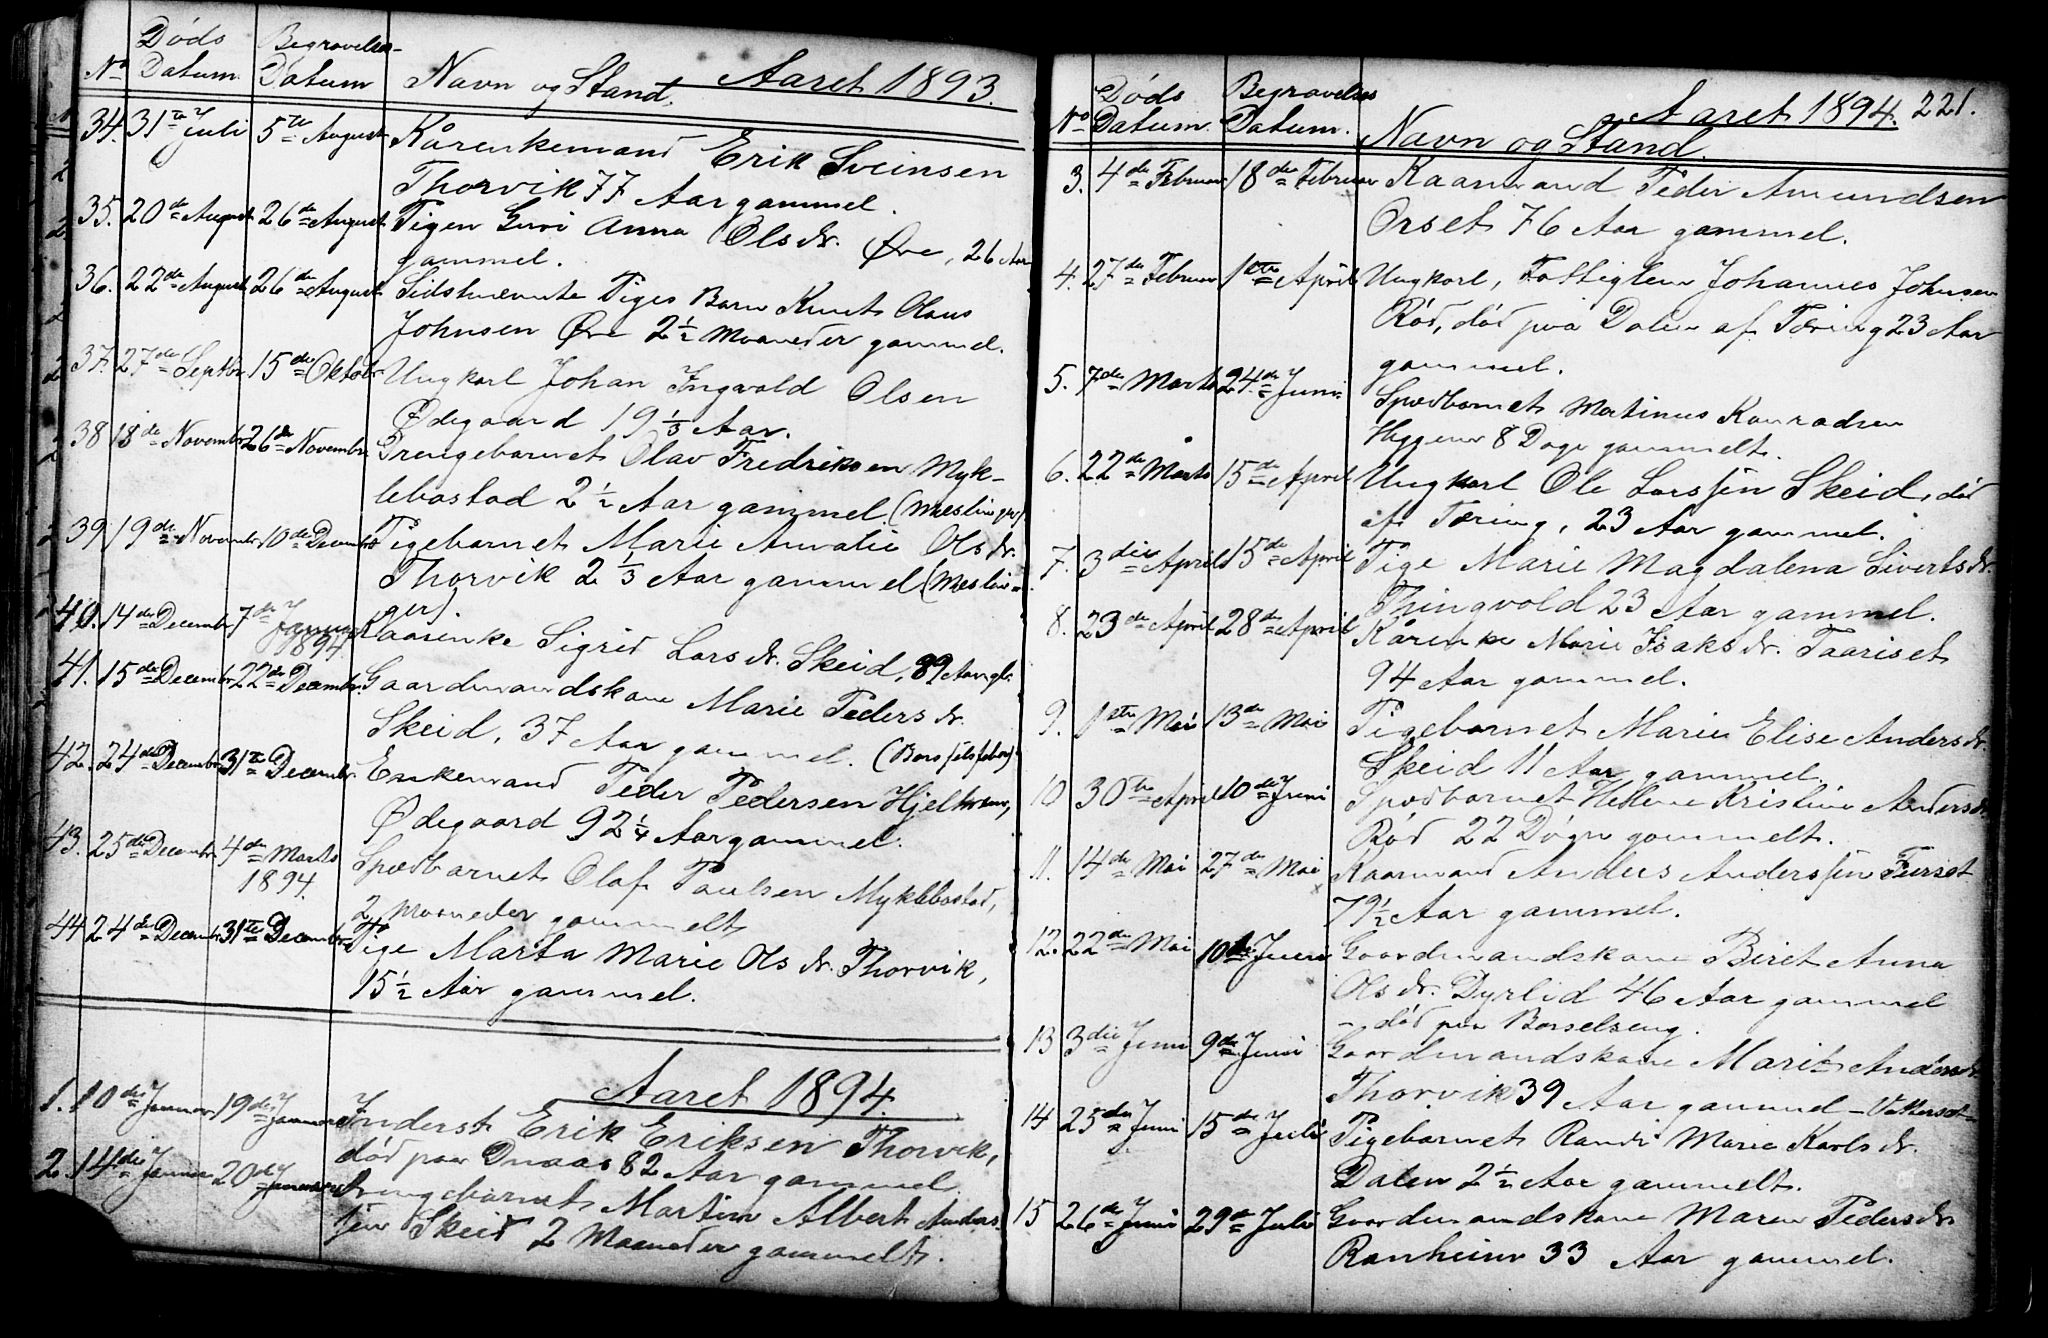 Aaret 1893.
No Døds Datum. Begravelses-Datum Navn og Stand.
34. 31te Juli 5te August Kårenkemand Erik Sveinsen
Thorvik 77 Aar gammel.
35. 20de August 26de August Pigen Guri Anna Olsdr. Øre, 26 Aar
gammel.
36. 22de August 26de August Sidstnævnte Piges Barn Knut Olaus
Johnsen Øre 2 1/2 Maaneder gammel.
37. 27de Septbr. 15de Oktobr. Ungkarl Johan Ingvald Olsen
Ødegaard 19 1/3 Aar.
38 18de Novembr. 26de Novembr. Drengebarnet Olav Fredriksen Myk-
lebostad 2 1/2 Aar gammel. (Meslinger)
39 19de Novembr. 10de Decembr. Pigebarnet Marie Amalie Olsdr.
Thorvik 2 1/3 Aar gammel (Meslin-
ger).
40. 14de Decembr. 7de Januar 1894. Kaarenke Sigrid Larsdr. Skeid, 89 Aar gl.
41. 15de Decembr. 22de Decembr. Gaardmandskone Marie Pedersdr.
Skeid, 37 Aar gammel. (Barselsfeber)
42. 24de Decembr. 31te Decembr. Enkemand Peder Pedersen
Ødegaard 92 1/4 Aar gammel.
43. 25de Decembr. 4de Marts 1894. Spædbarnet Olaf Paulsen Myklebostad,
2 Maaneder gammelt
44 24de Decembr. 31te Decembr. Pige Marta Marie Olsdr. Thorvik,
15 1/2 Aar gammel.
Aaret 1894.
1. 10de Januar 19de Januar Inderst Erik Eriksen Thorvik,
død paa 82 Aar gammel
2. 14de Januar 20de Januar Drengebarnet Martin Albert Anders-
sen Skeid 2 Maaneder gammelt.
Aaret 1894. 221.
No Døds Datum. Begravelses Datum. Navn og Stand.
3. 4de Februar 18de Februar Kaarmand Peder Amundsen
Orset 76 Aar gammel.
4. 27de Februar 1ste April Ungkarl, Fattiglem Johannes Johnsen
Rød, død paa Dalen af Tæring 23 Aar
gammel.
5. 7de Marts 24de Juni Spædbarnet Martinus Konradsen
Heggem 8 Dage gammelt.
6. 22de Marts 15de April Ungkarl Ole Larssen Skeid, død
af Tæring, 23 Aar gammel.
7. 3die April 15de April Pige Marie Magdalena Sivertsdr.
Thingvold 23 Aar gammel.
8. 23de April 28de April Kårenke Marie Isaksdr. Taariset
94 Aar gammel.
9. 1ste Mai 13de Mai Pigebarnet Marie Elise Andersdr.
Skeid 11 Aar gammel.
10 30te April 10de Juni Spædbarnet Hellene Kristine Andersdr.
Rød 22 Døgn gammelt.
11. 14de Mai 27de Mai Kaarmand Anders Anderssen Furset
79 1/2 Aar gammel.
12. 22de Mai 10de Juni Gaardmandskone Beret Anna
Olsdr. Dyrlid 46 Aar gammel
- død paa Barselseng.
13 3die Juni 9de Juni Gaardmandskone Marit Andersdr.
Thorvik 39 Aar gammel -
14 25de Juni 15de Juli Pigebarnet Randi Marie Karlsdr.
Dalen 2 1/2 Aar gammelt.
15 26de Juni 29de Juli Gaardmandskone Maren Pedersdr.
Ranheim 33 Aar gammel.